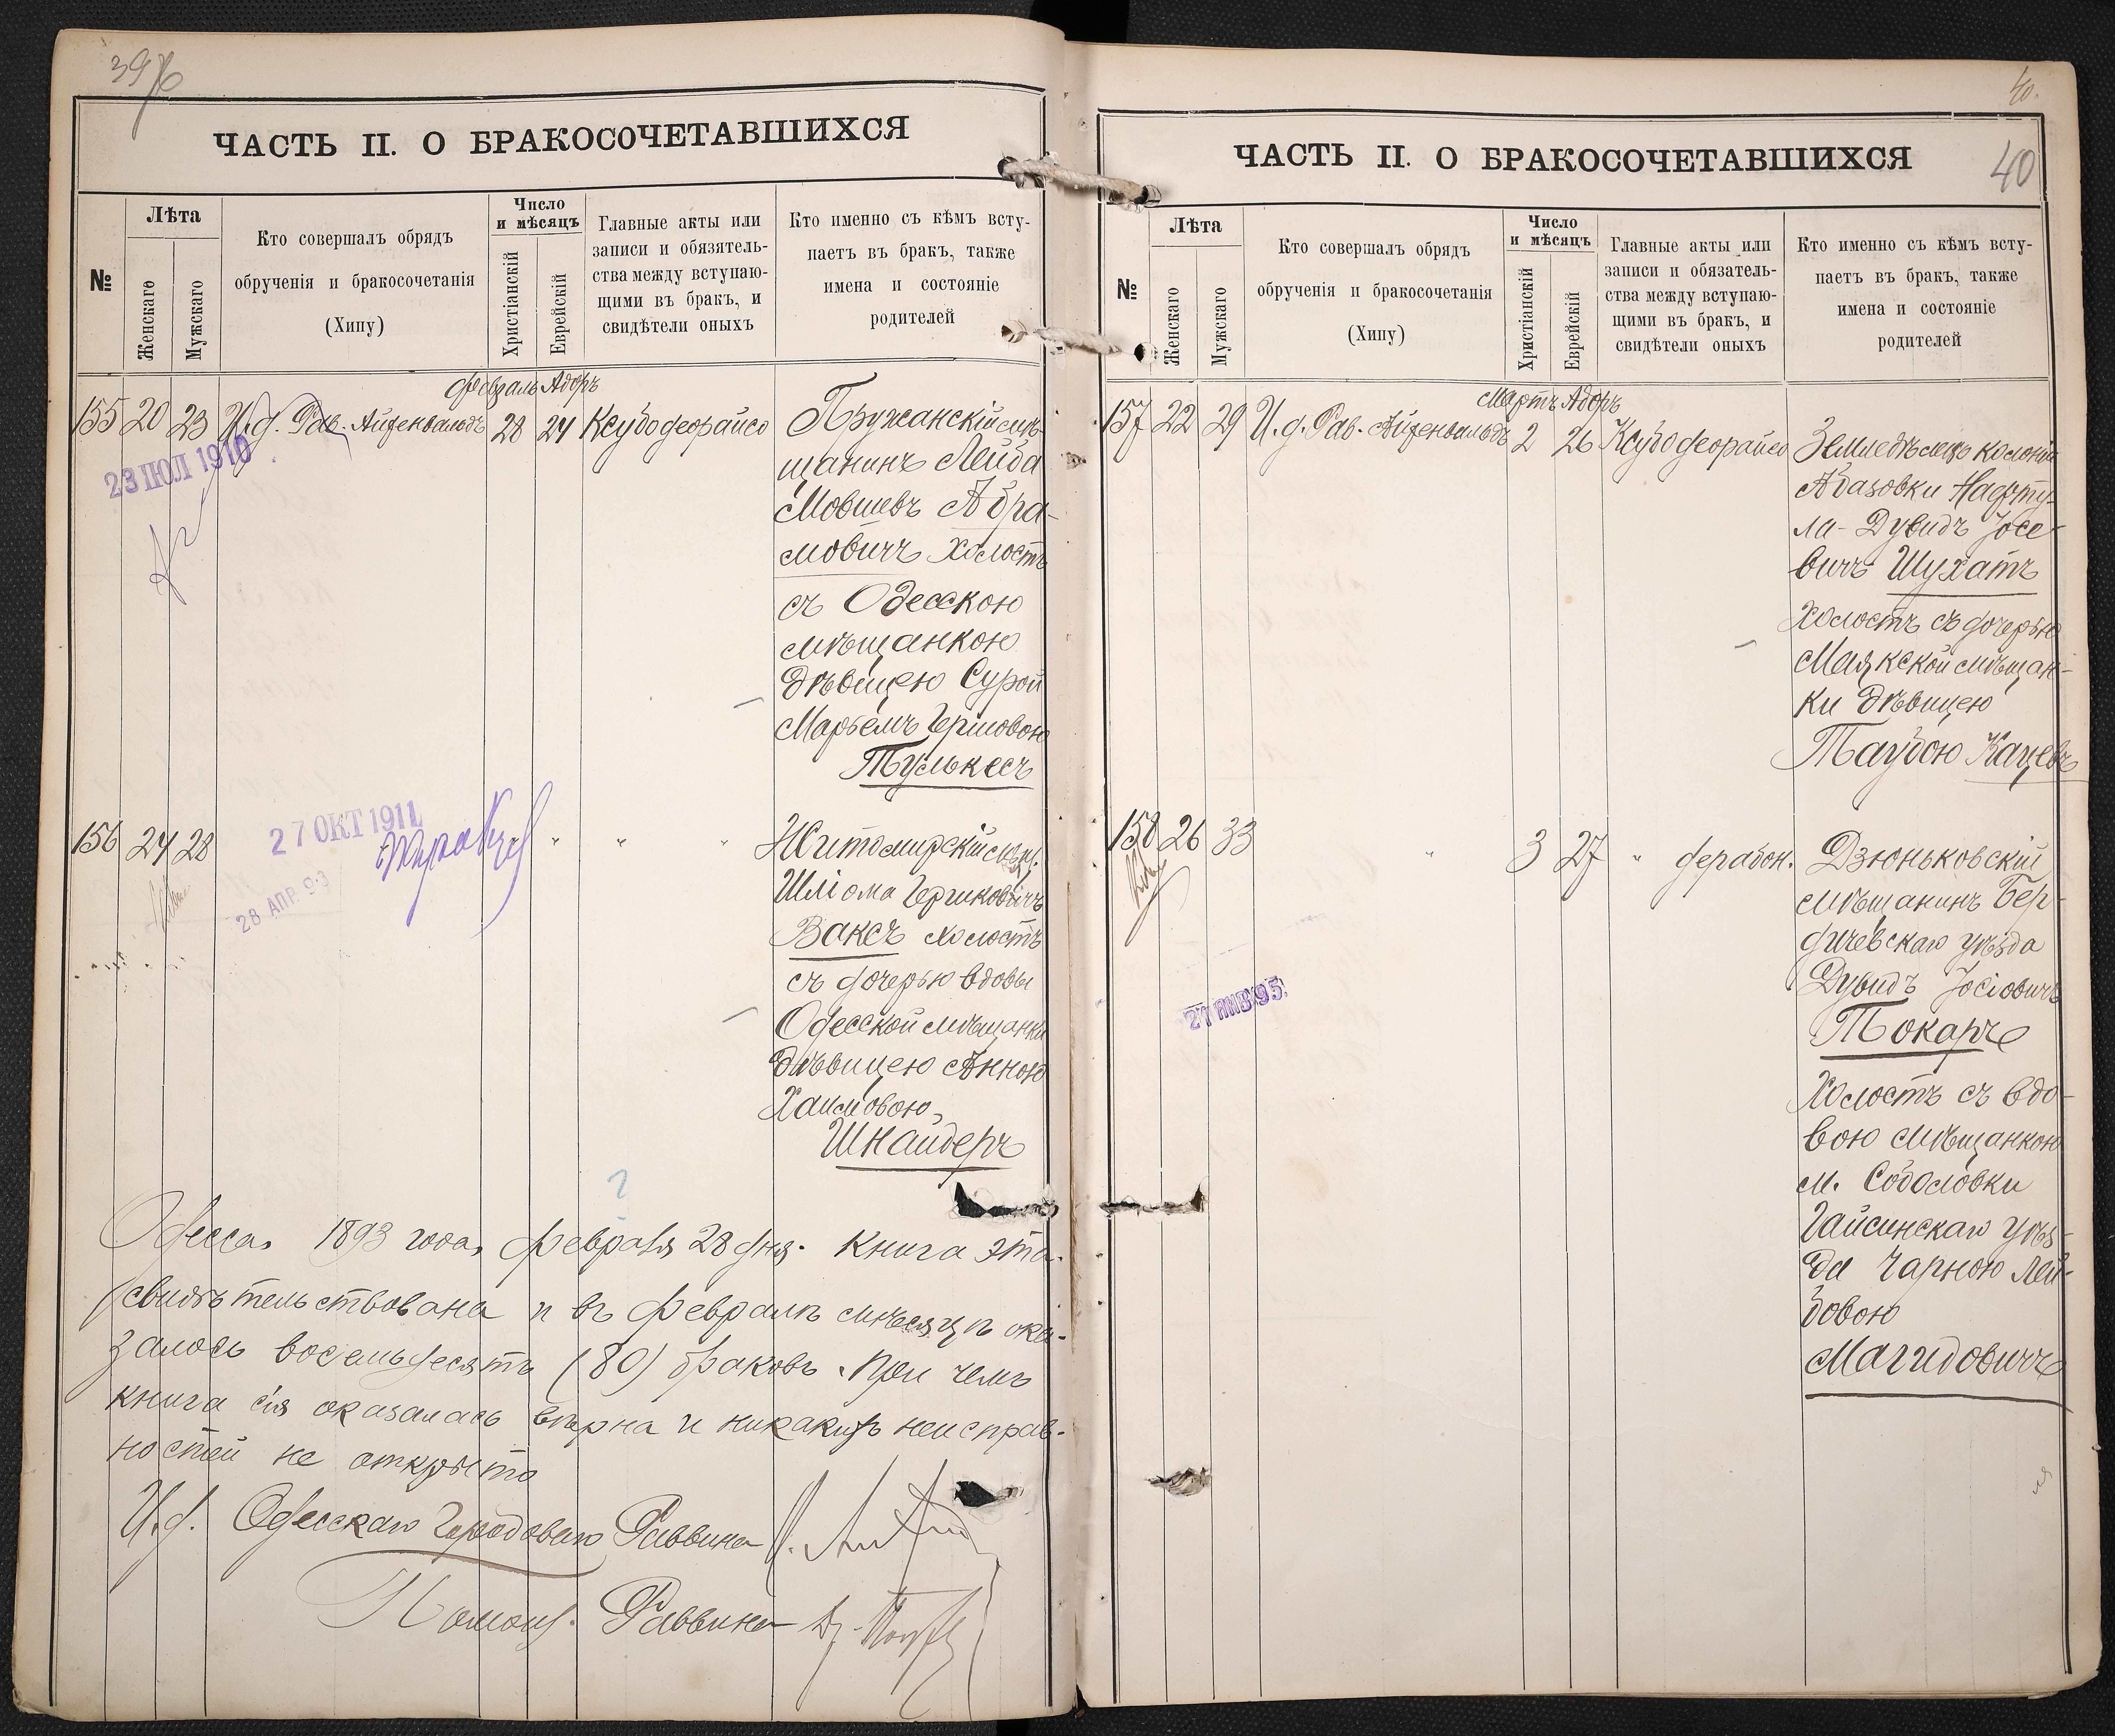 39
ЧАСТЬ II. О БРАКОСОЧЕТАВШИХСЯ
№
Лѣта
Женскаго
Мужскаго
Кто совершалъ обрядъ
обрученія и бракосочетанія
(Хипу)
Число
и мѣсяцъ
Христіанскій
Еврейскій
Главные акты или
записи и обязятель-
ства между вступаю-
щими въ бракъ, и
свидѣтели оныхъ
Кто именно съ кѣмъ всту-
паетъ въ бракъ, также
имена и состояніе
родителей
Февраль Адоръ
155 20 23 И.д. Рав. Айзенвальдъ 28 24 Ксубо деорайсо
Пружанскій мѣ-
щанинъ Лейба
Мовшевъ Абра-
мовичъ холостъ
съ Одесскою
мѣщанкою
дѣвицею Сурой
Марьемъ Гершовою
Тулькесъ
23 ІЮЛ 1910
156 24 28 " " "
Житомирскій мѣщ.
Шліома Гершковичъ
Ваксъ холостъ
съ дочерью вдовы
Одесской мѣщанки
дѣвицею Анною
Хаимовою
Шнайдеръ
27 ОКТ 1911
28 АПР. 93
Одесса 1893 года, февраля 28 дня. Книга эта
свидѣтельствована и въ февралѣ мѣсяцѣ ока-
залось восемьдесятъ (80) браковъ. При чемъ
книга сія оказалась вѣрна и никакихъ неисправ-
ностей не открыто
И.д. Одесскаго Городоваго Раввина
Помощ. Раввина
40.
40
ЧАСТЬ II. О БРАКОСОЧЕТАВШИХСЯ
№
Лѣта
Женскаго
Мужскаго
Кто совершалъ обрядъ
обрученія и бракосочетанія
(Хипу)
Число
и мѣсяцъ
Христіанскій
Еврейскій
Главные акты или
записи и обязатель-
ства между вступаю-
щими въ бракъ, и
свидѣтели оныхъ
Кто именно съ кѣмъ всту-
паетъ въ бракъ, также
имена и состояніе
родителей
Мартъ Адоръ
157 22 29 И.д. Рав. Айзенвальдъ 2 26 Ксубо деорайсо
Земледѣлецъ колоніи
Абазовки Нафту-
ла-Дувидъ Іосе-
вичъ Шухатъ
холостъ съ дочерью
Маякской мѣщан-
ки дѣвицею
Таубою Кацевъ
158 26 33 " 3 27 " дерабон.
Дзюньковскій
мѣщанинъ Бер-
дичевскаго уѣзда
Дувидъ Іосіовичъ
Токарь
Холостъ съ вдо-
вою мѣщанкою
м. Соболовки
Гайсинскаго уѣз-
да Чарною Лей-
бовою
Магидовичъ
27 ЯНВ 95